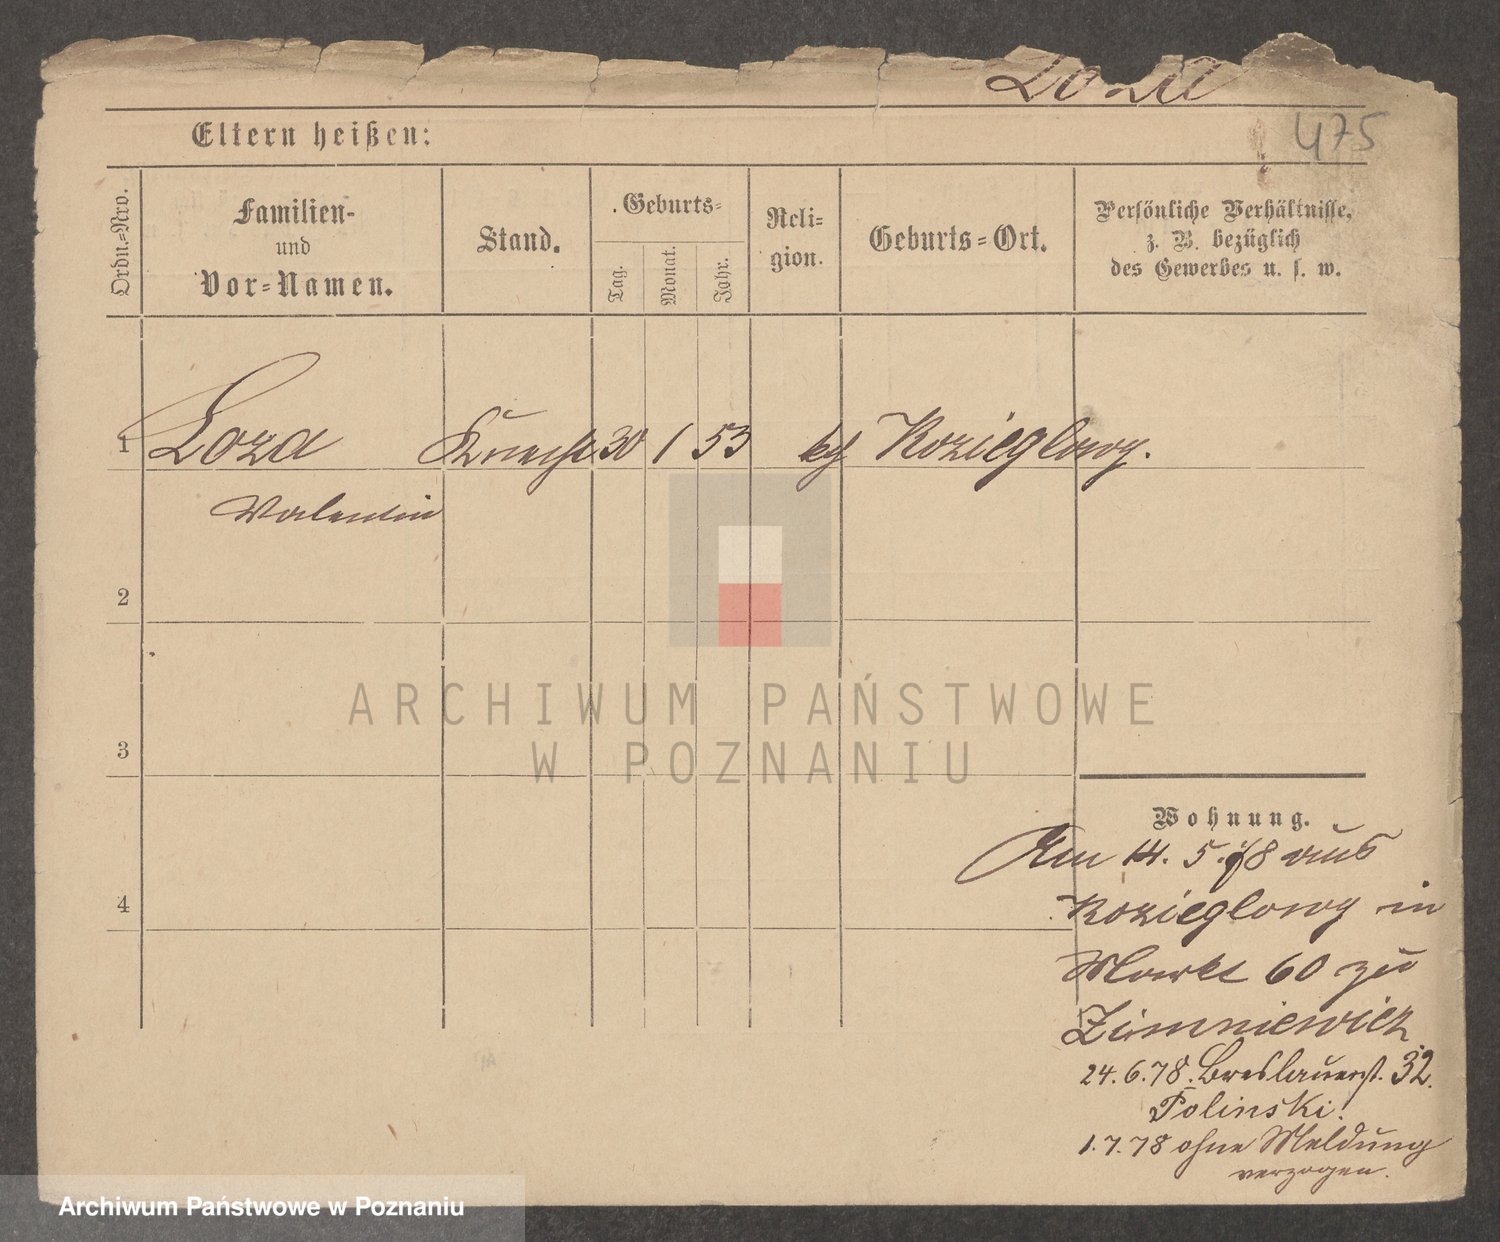 Loza
475
Eltern heißen:
Ordn.=Nro.
Familien-
und
Vor=Namen.
Stand.
Geburts=
Tag.
Monat.
Jahr.
Reli=
gion.
Geburts=Ort.
Persönliche Verhältnisse,
z. B. bezüglich
des Gewerbes u. s. w.
1 Loza Knecht 30 1 53 kg Kozieglowy.
Valentin
2
3
4
Wohnung.
Am 14. 5. 78 aus
Kozieglowy in
Markt 60 zu
Zimniewicz
24. 6. 78. Breslauerst. 32.
Polinski.
1. 7. 78 ohne Meldung
verzogen.
ARCHIWUM PAŃSTWOWE
W POZNANIU
Archiwum Państwowe w Poznaniu